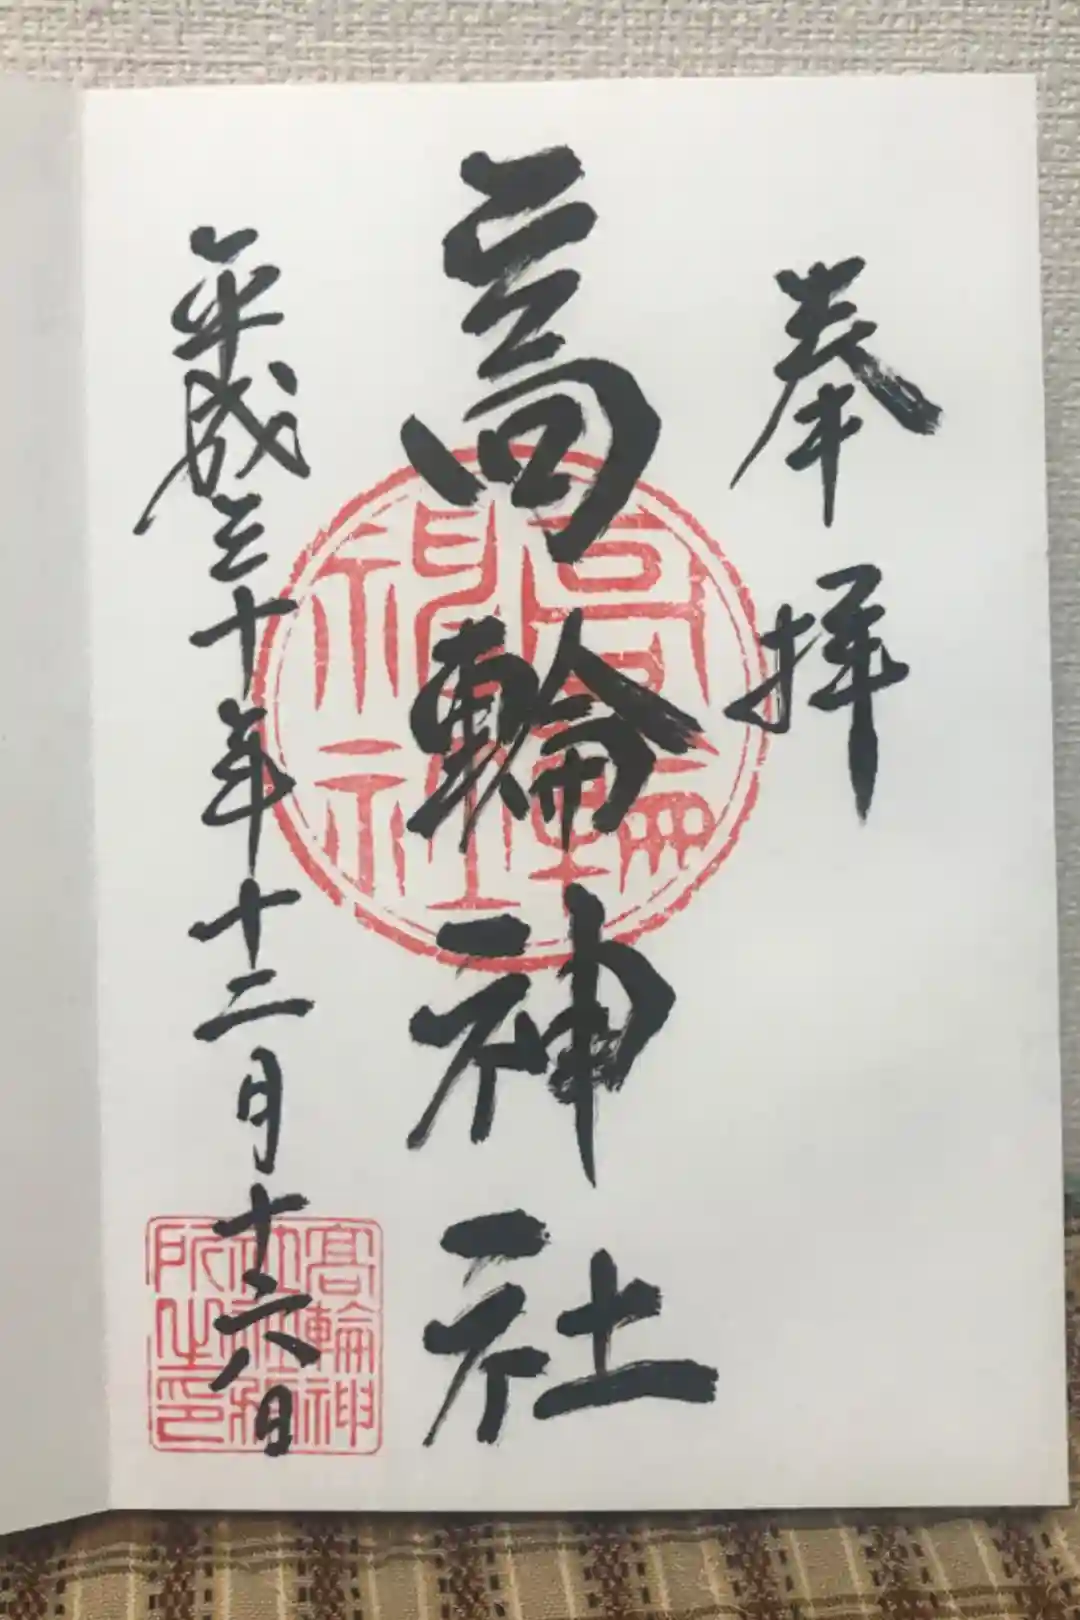 奉拝
高輪神社
平成三十年十二月十六日
高輪神社
髙輪神
社社務
所之印